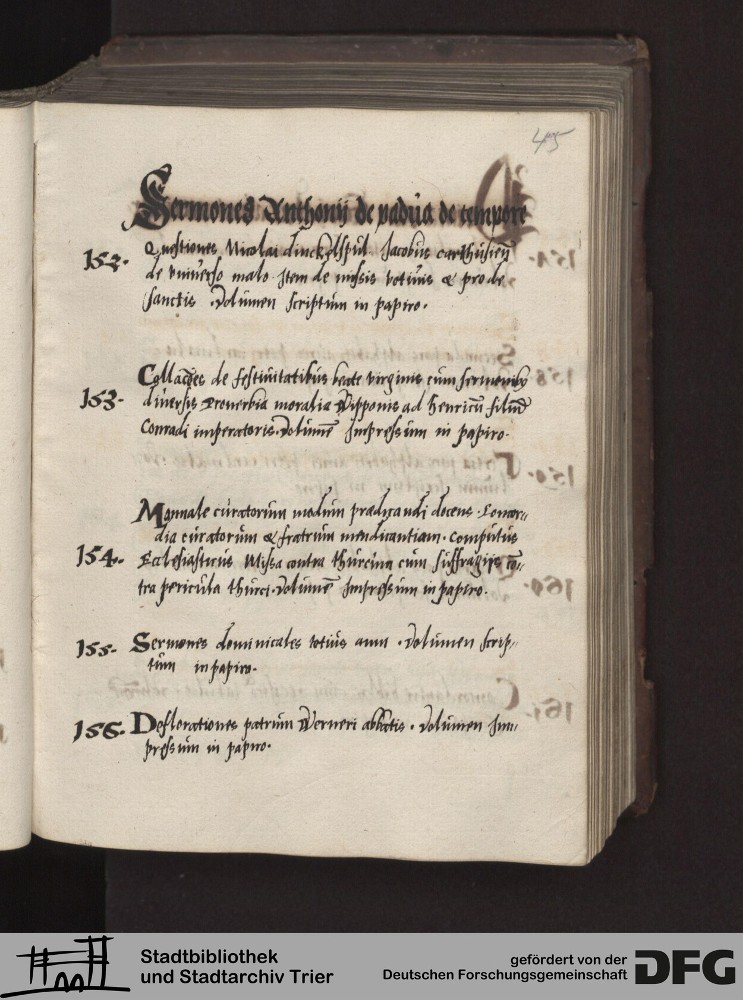 45
Sermones Anthonij de padua de tempore
152. Questiones Nicolai dinckelspul Jacobus carthusien
de vniuerso malo Item de missis votiuis & pro de
sanctis . Volumen scriptum in papiro.
153. Collacões de festiuitatibus beate virginis cum sermonibꝯ
diuersis Prouerbia moralia Wipponis ad Henricũ filiũ
Conradi imperatoris. Volumẽ Impressum in papiro.
154. Manuale curatorum modum predicandi docens . Concor-
dia curatorum & fratrum mendicantium . Computus
Ecclesiasticus Missa contra thurcum cum suffragijs cõ-
tra pericula thurci. Volumẽ Impressum in papiro.
155. Sermones dominicales totius anni . Volumen scrip-
tum in papiro.
156. Deflorationes patrum Werneri abbatis . Volumen Im-
pressum in papiro.
Stadtbibliothek
und Stadtarchiv Trier
gefördert von der
Deutschen Forschungsgemeinschaft
DFG